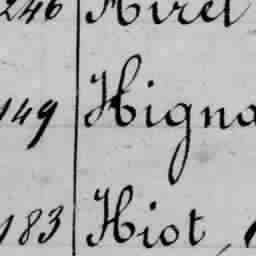 246 Hirel
149 Higna
183 Hiot,